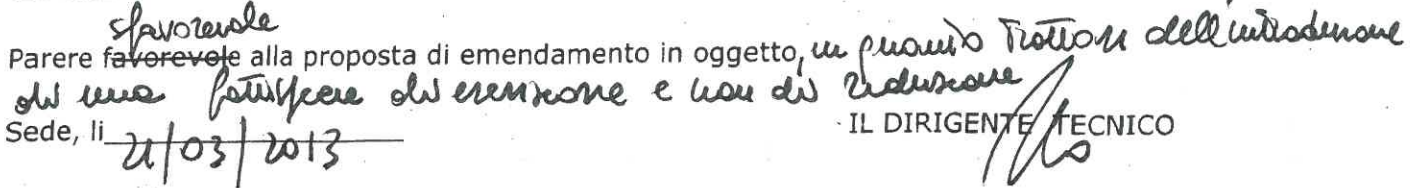 sfavorevole
Parere favorevole alla proposta di emendamento in oggetto, in quanto trattasi dell'introduzione
di una fattispecie di esenzione e non di riduzione
Sede, li 21/03/2013 IL DIRIGENTE TECNICO